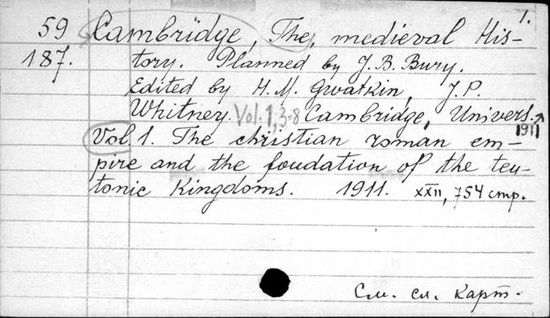 1.
59 Cambridge, The, medieval His-
187. tory. Planned by J. B. Bury.
Edited by H. M. Gwatkin, J. P.
Whitney. Vol. 1, 3-8 Cambridge, Univers.
1911
Vol. 1. The christian roman em-
pire and the foudation of the teu-
tonic Kingdoms. 1911. XXII, 754 стр.
См. сл. карт.